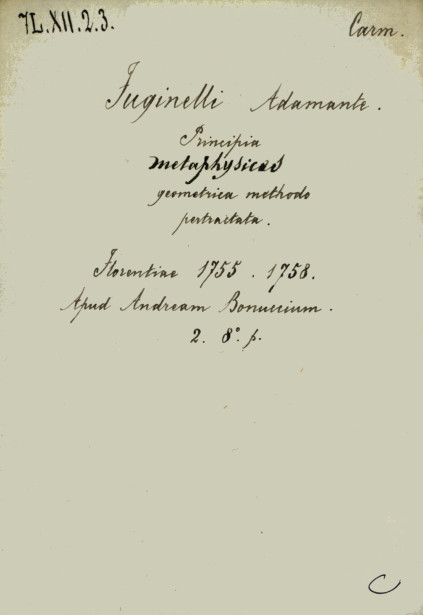 7L.XII.2.3.
Carm.
Fuginelli Adamante.
Principia
metaphysicas
geometrica methodo
pertractata.
Florentiae 1755. 1758.
Apud Andream Bonuccium.
2. 8°. p.
C